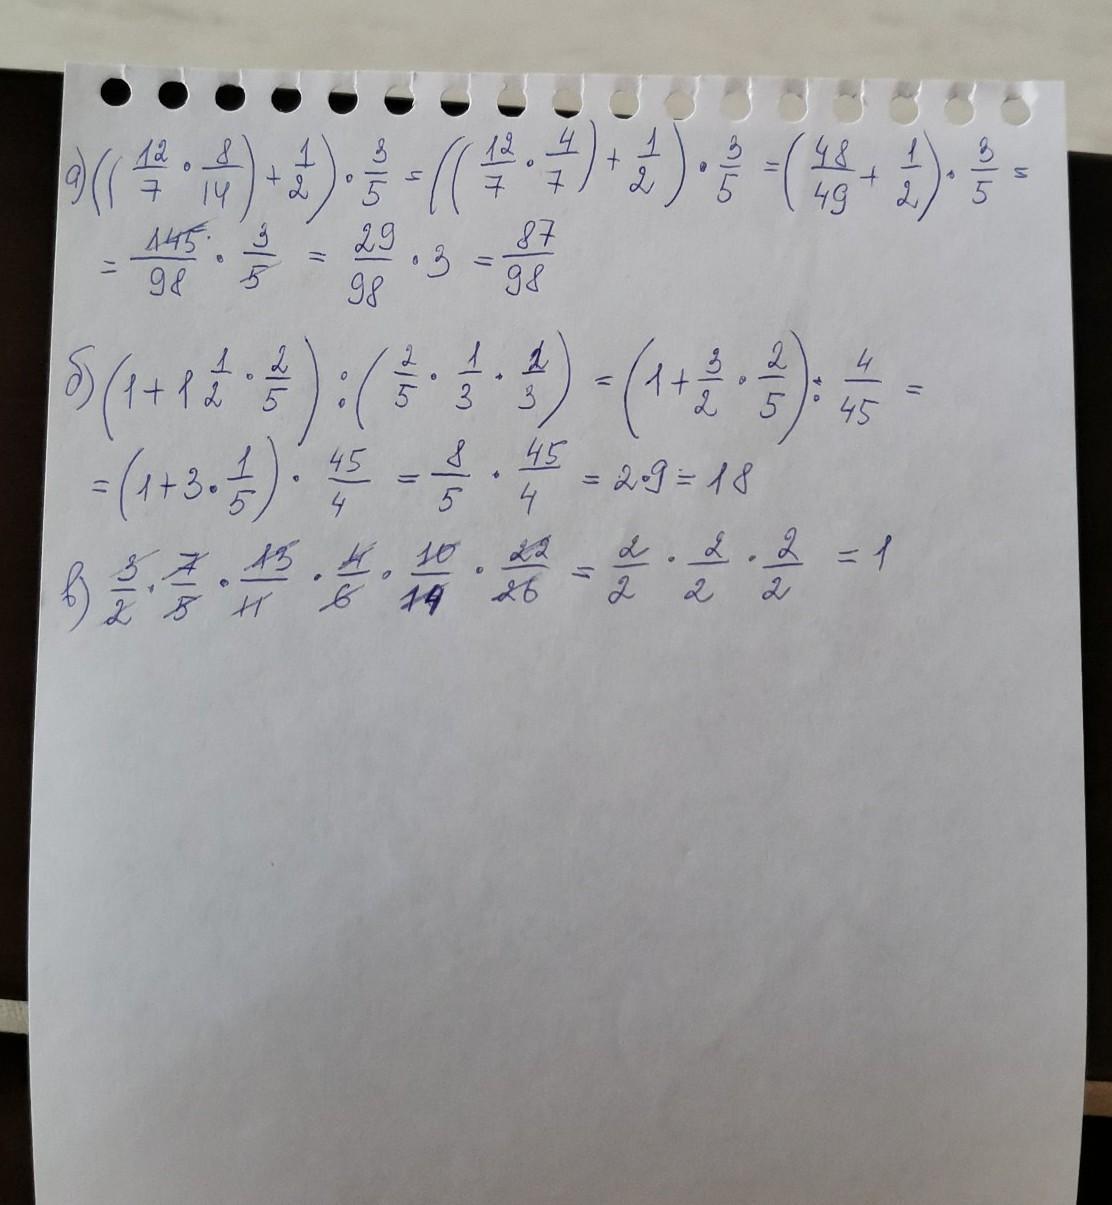 а) ((12/7 · 8/14) + 1/2) · 3/5 = ((12/7 · 4/7) + 1/2) · 3/5 = (48/49 + 1/2) · 3/5 =
= 145/98 · 3/5 = 29/98 · 3 = 87/98
б) (1 + 1 1/2 · 2/5) : (2/5 · 1/3 · 2/3) = (1 + 3/2 · 2/5) : 4/45 =
= (1 + 3 · 1/5) · 45/4 = 8/5 · 45/4 = 2 · 9 = 18
в) 3/2 · 7/5 · 13/11 · 4/6 · 10/14 · 22/26 = 2/2 · 2/2 · 2/2 = 1